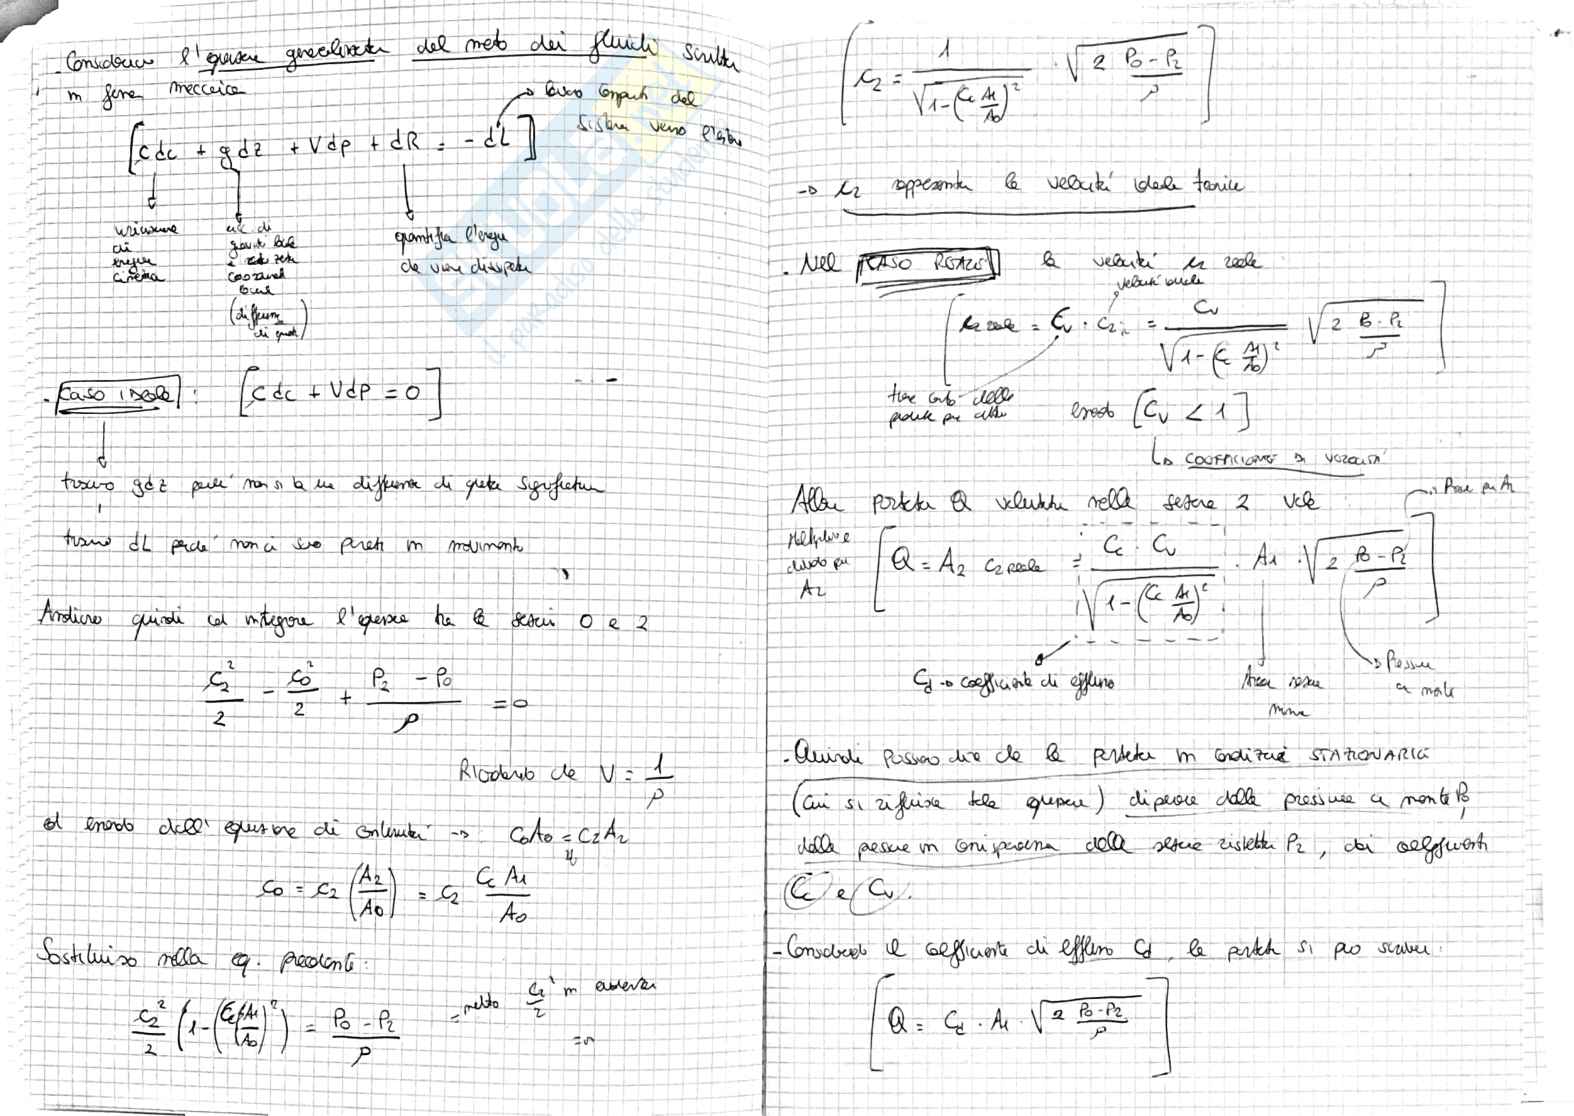 - Considero l'equazione generalizzata del moto dei fluidi scritta
in forma meccanica
lavoro compiuto dal
sistema verso l'esterno
[c dc + g dz + V dp + dR = - dL]
variazione
di
energia
cinetica
(differenza
di quota)
quantifica l'energia
che viene dissipata
. CASO IDEALE : [c dc + V dp = 0]
trascuro g dz perché non si ha una differenza di quota significativa
trascuro dL perché non ci sono pareti in movimento
Andiamo quindi ad integrare l'equazione tra le sezioni 0 e 2
c₂²/2 - c₀²/2 + (P₂ - P₀)/ρ = 0
Ricordando che V = 1/ρ
ed essendo dall'equazione di continuità → c₀A₀ = c₂A₂
c₀ = c₂ (A₂/A₀) = c₂ Cc A₁/A₀
Sostituisco nella eq. precedente:
c₂²/2 (1 - (Cc A₁/A₀)²) = (P₀ - P₂)/ρ = metto c₂²/2 in evidenza
[c₂ = 1/√(1 - (Cc A₁/A₀)²) · √(2 (P₀ - P₂)/ρ)]
→ c₂ rappresenta la velocità ideale teorica
. Nel CASO REALE la velocità c₂ reale
velocità ideale
[c₂ reale = Cv · c₂ = Cv/√(1 - (Cc A₁/A₀)²) √(2 (P₀ - P₂)/ρ)]
tiene conto delle
perdite per attrito
essendo [Cv < 1]
↳ COEFFICIENTE DI VELOCITÀ
Allora portata Q valutata nella sezione 2 vale :
Moltiplico e
divido per
A₂
[Q = A₂ c₂ reale = Cc · Cv/√(1 - (Cc A₁/A₀)²) · A₁ · √(2 (P₀ - P₂)/ρ)]
Cd → coefficiente di efflusso
Area sezione
Pressione
a monte
- Quindi possiamo dire che la portata in condizioni STAZIONARIE
(cui si riferisce tale equazione) dipende dalla pressione a monte P₀,
dalla pressione in corrispondenza della sezione ristretta P₂, dai coefficienti
Cc e Cv.
- Considerando il coefficiente di efflusso Cd, la portata si può scrivere:
[Q = Cd · A₁ · √(2 (P₀ - P₂)/ρ)]